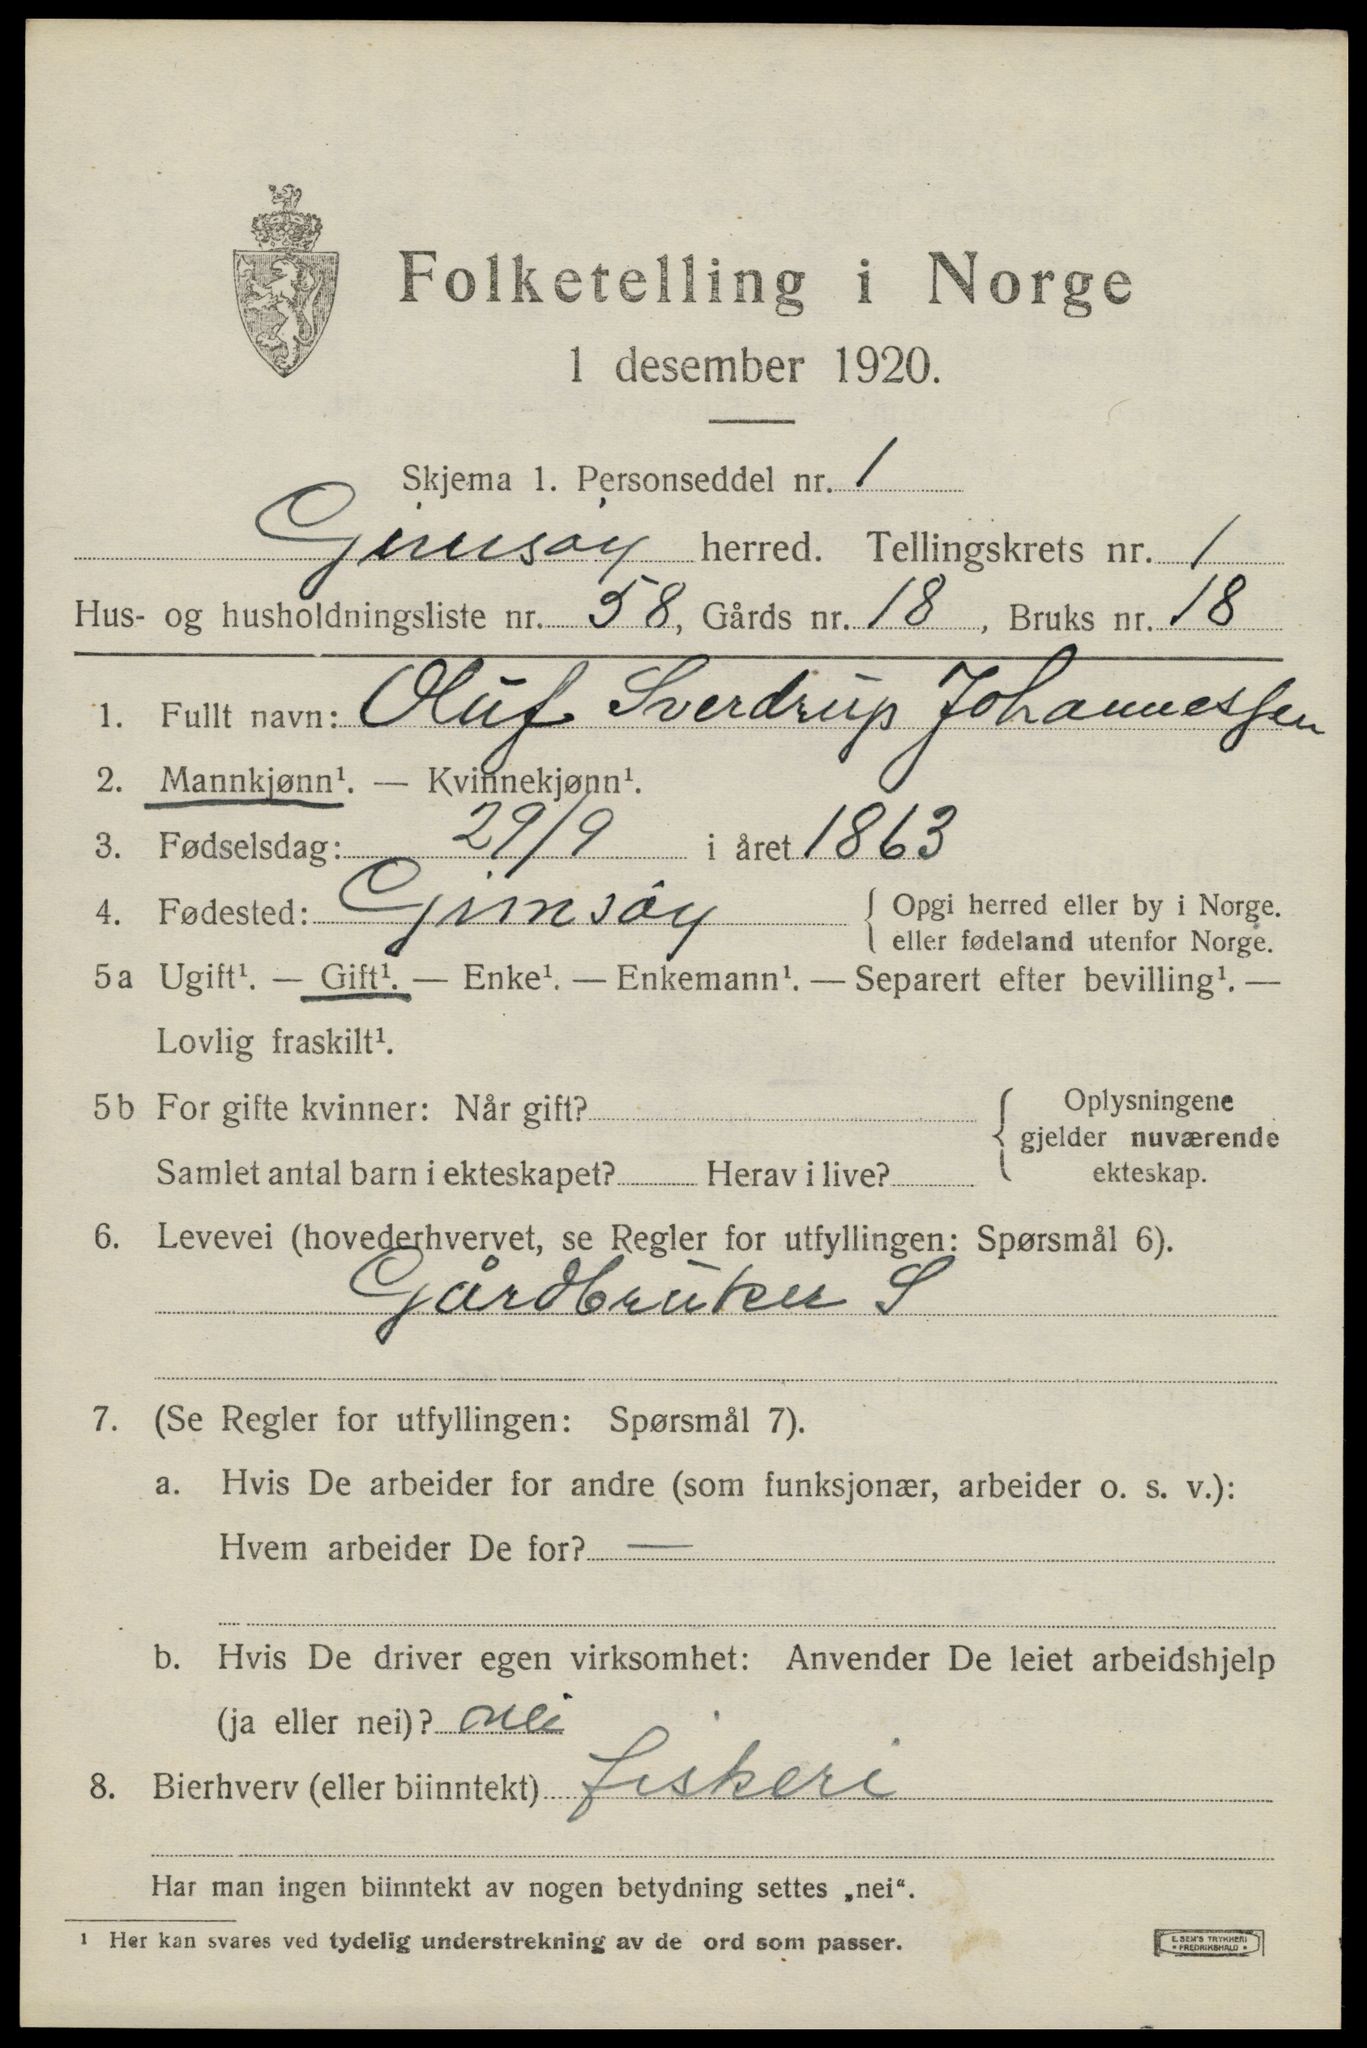 Folketelling i Norge
1 desember 1920.
Skjema 1. Personseddel nr. 1
Gimsøy herred. Tellingskrets nr. 1
Hus- og husholdningsliste nr. 58, Gårds nr. 18, Bruks nr. 18
1. Fullt navn: Oluf Sverdrup Johannessen
2. Mannkjønn¹. — Kvinnekjønn¹.
3. Fødselsdag: 29/9 i året 1863
4. Fødested: Gimsøy { Opgi herred eller by i Norge.
eller fødeland utenfor Norge.
5a Ugift¹. — Gift¹. — Enke¹. — Enkemann¹. — Separert efter bevilling¹. —
Lovlig fraskilt¹.
5b For gifte kvinner: Når gift? { Oplysningene
gjelder nuværende
ekteskap.
Samlet antal barn i ekteskapet? Herav i live?
6. Levevei (hovederhvervet, se Regler for utfyllingen: Spørsmål 6).
Gårdbruker S
7. (Se Regler for utfyllingen: Spørsmål 7).
a. Hvis De arbeider for andre (som funksjonær, arbeider o. s. v.):
Hvem arbeider De for? —
b. Hvis De driver egen virksomhet: Anvender De leiet arbeidshjelp
(ja eller nei)? nei
8. Bierhverv (eller biinntekt) fiskeri
Har man ingen biinntekt av nogen betydning settes „nei“.
¹ Her kan svares ved tydelig understrekning av de ord som passer.
E. SEM'S TRYKKERI
• FREDRIKSHALD •